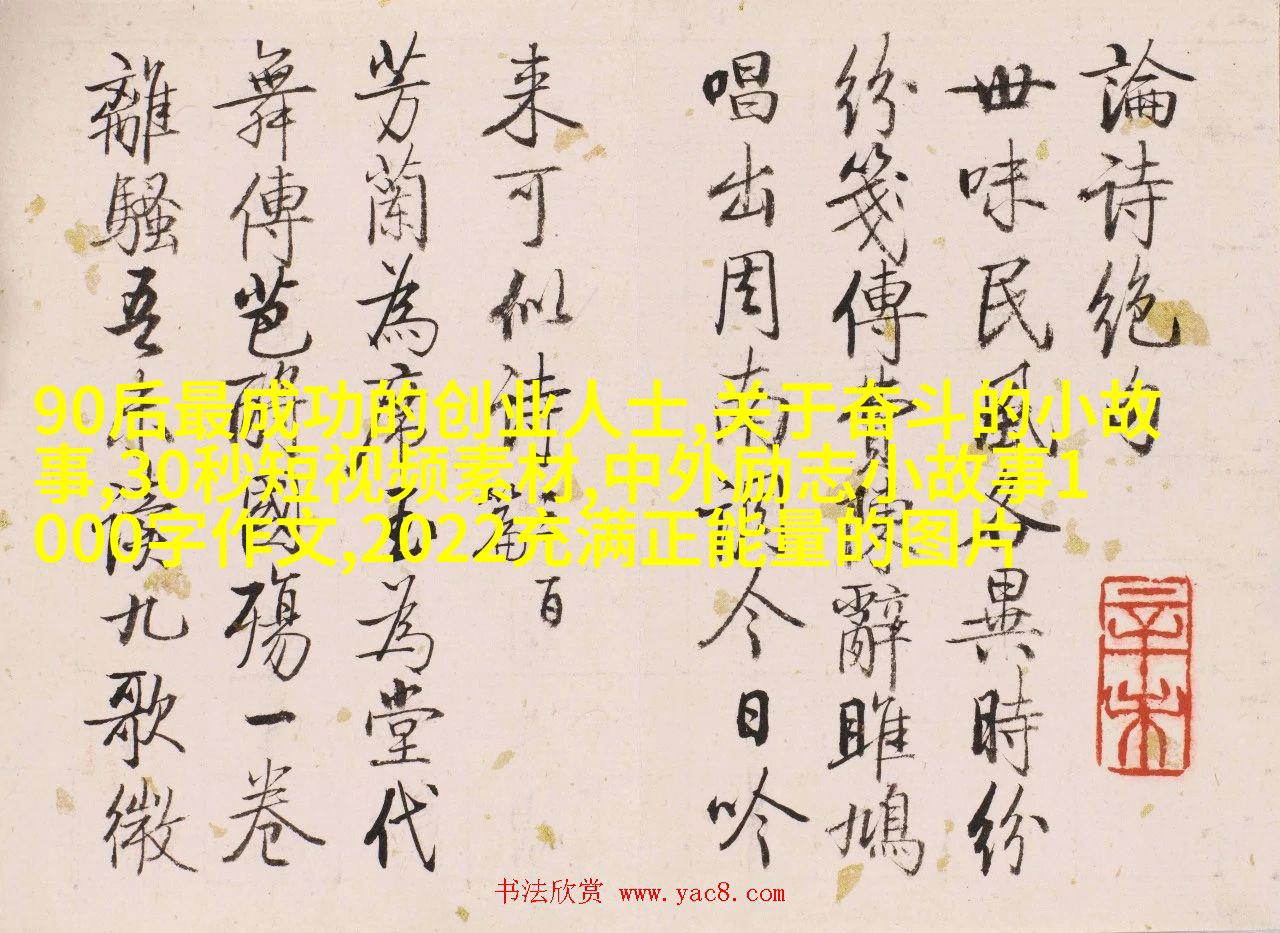 論诗绝句
世味民風各異時紛
紛箋傳辭雎鳩
唱出周南調今日吟
来可似诗篇
百
芳蘭為席玉為堂代
舞傳芭酹國殤一卷
離騷吾讀九歌微
辛未
90后最成功的创业人士,关于奋斗的小故
事,30秒短视频素材,中外励志小故事1
000字作文,2022充满正能量的图片
书法欣赏 www.yac8.com